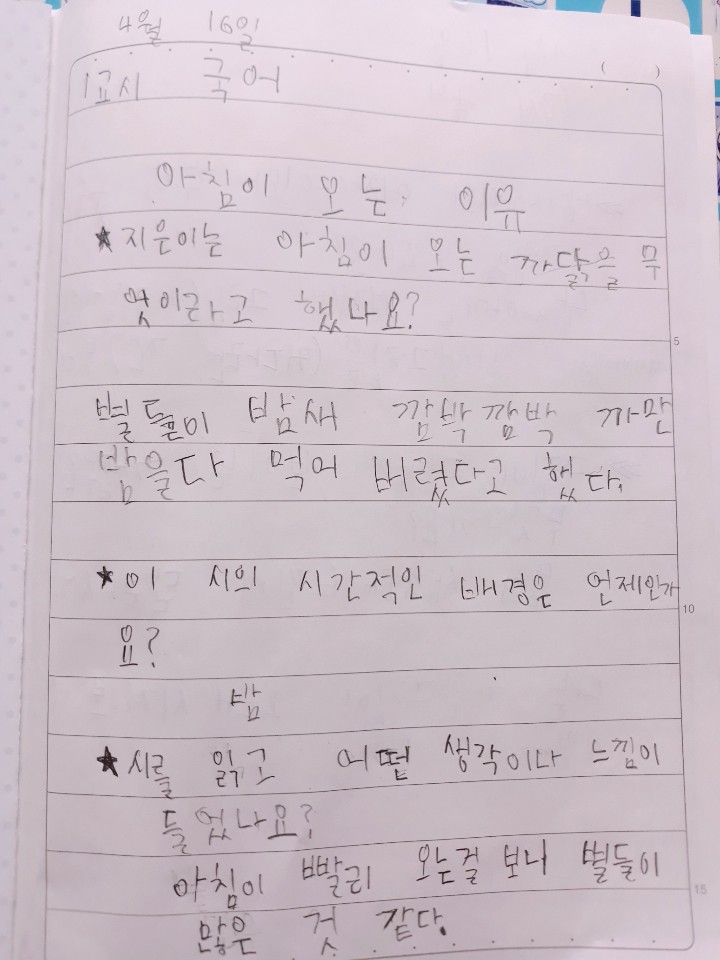 4월 16일
( )
1교시 국어
아침이 오는 이유
★지은이는 아침이 오는 까닭을 무
엇이라고 했나요?
5
별들이 밤새 깜박깜박 까만
밤을다 먹어 버렸다고 했다.
★이 시의 시간적인 배경은 언제인가
10
요?
밤
★시를 읽고 어떤 생각이나 느낌이
들었나요?
아침이 빨리 오는걸 보니 별들이
15
많은 것 같다.